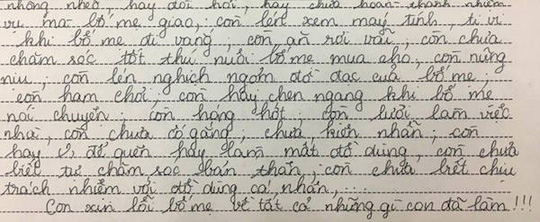 nhõng nhẽo, hay đòi hỏi, hay chưa hoàn thành nhiệm
vụ mà bố mẹ giao, còn lén xem máy tính, ti vi
khi bố mẹ đi vắng, còn ăn rơi vãi, còn chưa
chăm sóc tốt thú nuôi bố mẹ mua cho, còn nũng
nịu, còn lén nghịch ngợm đồ đạc của bố mẹ,
còn ham chơi, còn hay chen ngang khi bố mẹ
nói chuyện, còn hóng hớt, còn lười làm việc
nhà, còn chưa cố gắng, chưa kiên nhẫn, còn
hay để quên hay làm mất đồ dùng, còn chưa
biết tự chăm sóc bản thân, còn chưa biết chịu
trách nhiệm với đồ dùng cá nhân,...
Con xin lỗi bố mẹ về tất cả những gì con đã làm!!!